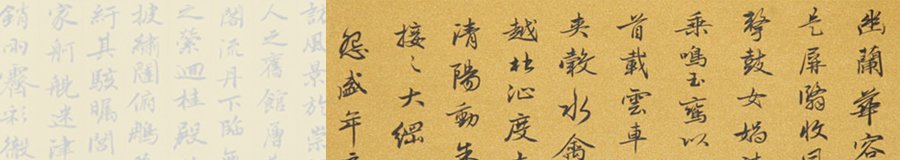 幽蘭華容
是屏翳收風
擊鼓女媧
乘鳴玉鸞以
首載雲車
夾轂水禽
越北沚度
清陽動朱
接之大綱
怨盛年
訪風景於崇
人之舊館層
閣流丹下臨
之縈迴桂殿
披繡闥俯雕
紆其駭矚閭
家舸艦迷津
銷雨霽彩徹